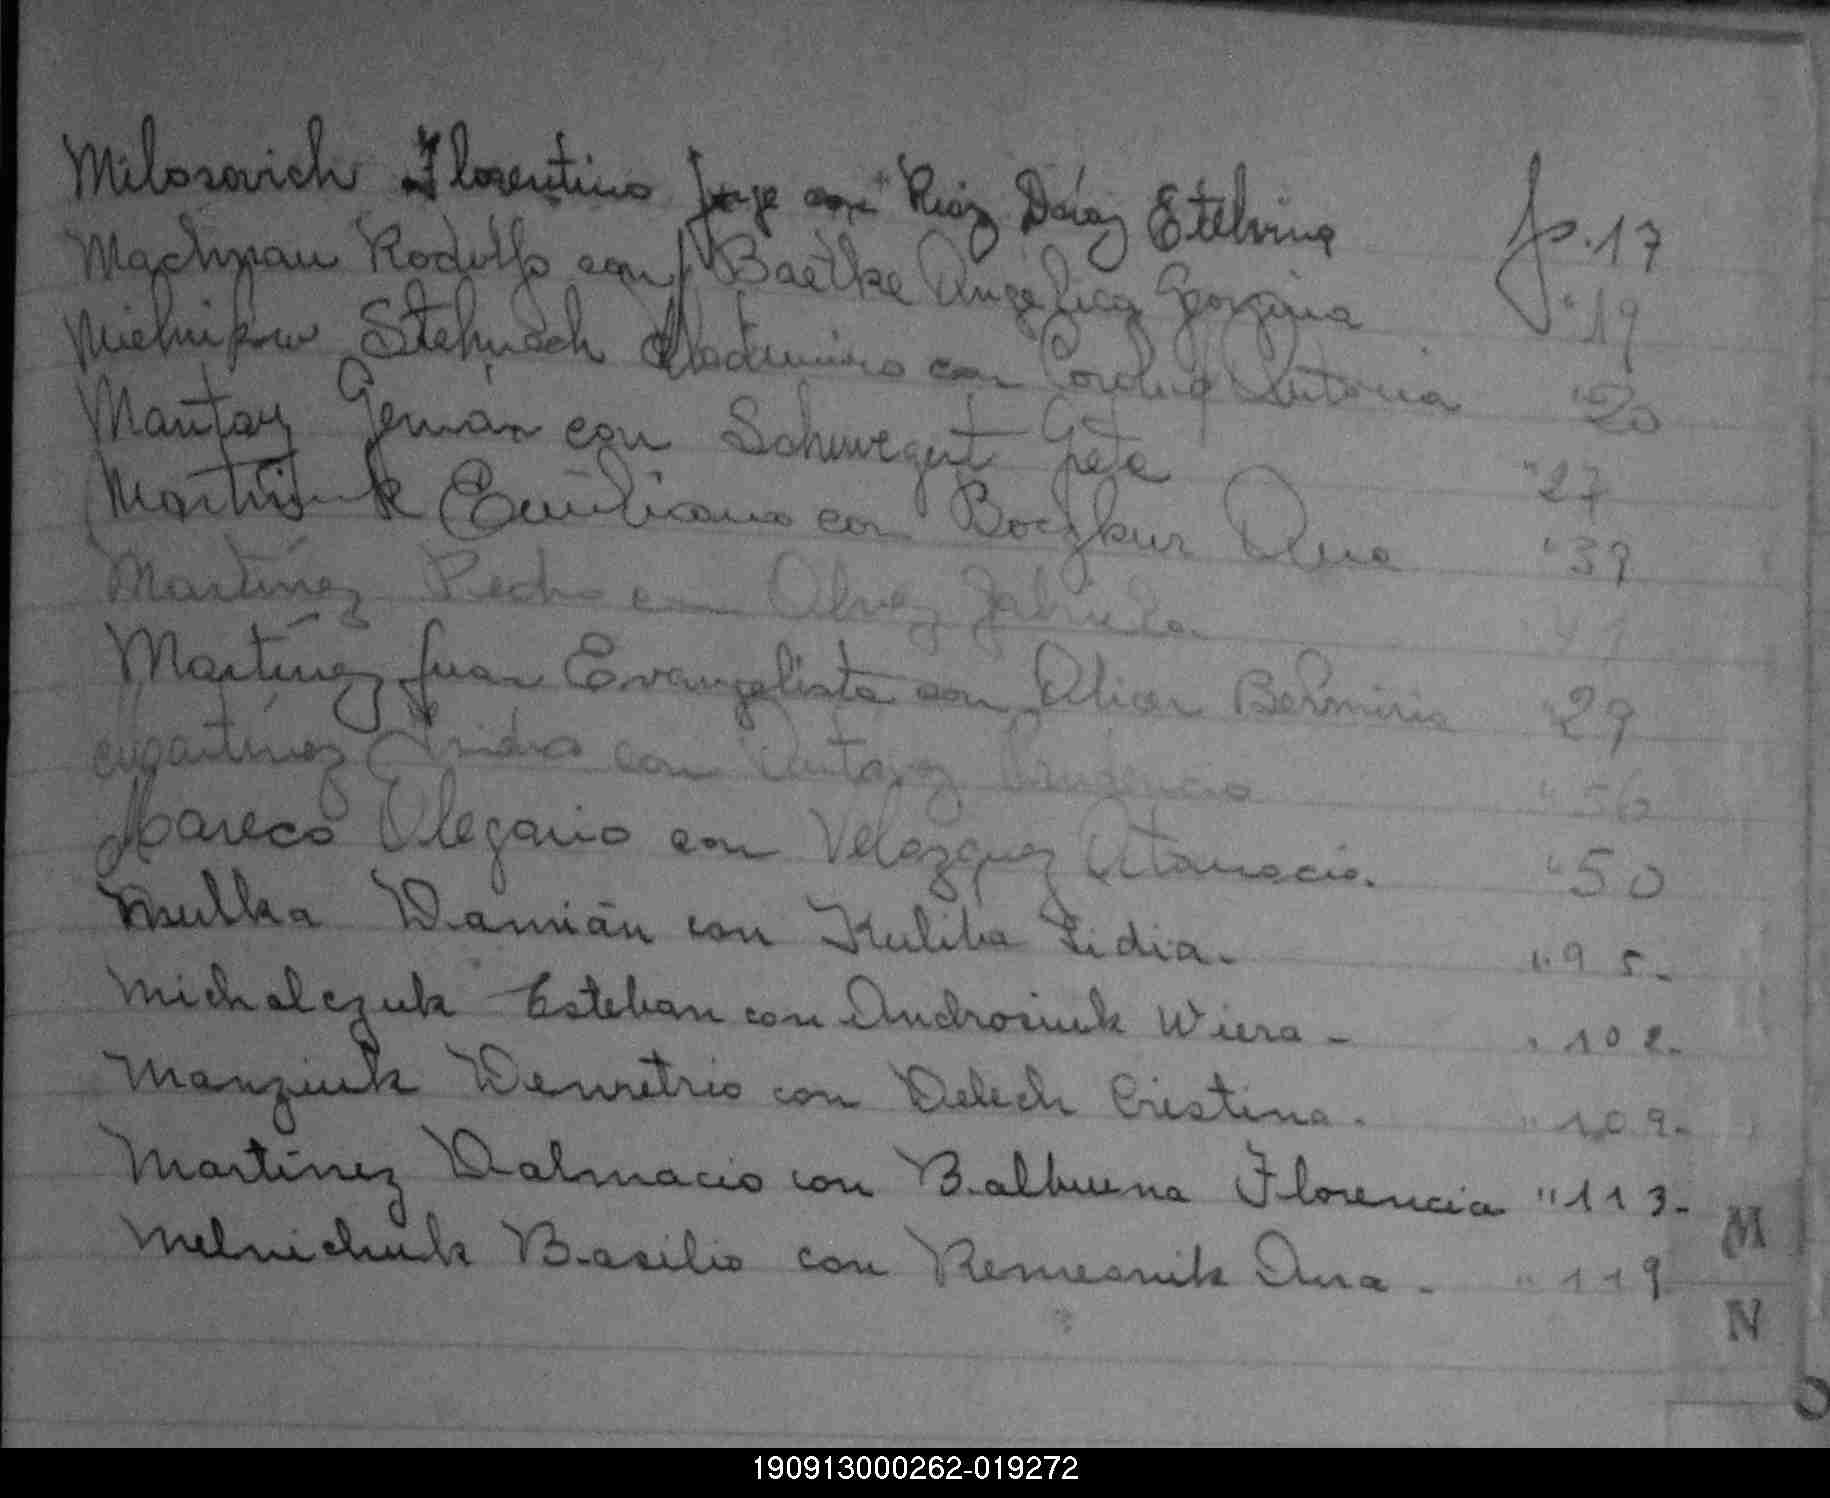 Milosavich Florentino Jorge con Ruiz Díaz Etelvina fs. 17
Machnau Rodolfo con Baetke Angélica Georgina " 19
Mielnikow con Antonia " 20
Mantay Germán con Schwegert Greta " 27
Martiniuk Emiliano con Boczkur Ana " 39
Martínez Pedro con Olvez
Martínez Juan Evangelista con Alicer Belmiria " 29
Martínez Isidro con Antonez Prudencia " 56
Mareco Olegario con Velazquez Atanacia. " 50
Mulka Damián con Kuliba Lidia. " 95.
Michalczuk Esteban con Androsiuk Wiera - " 102.
Manziuk Demetrio con Delech Cristina. " 109.
Martínez Dalmacio con Balbuena Florencia " 113.
Melnichuk Basilio con Remesnik Ana. " 119
M
N
O
190913000262-019272